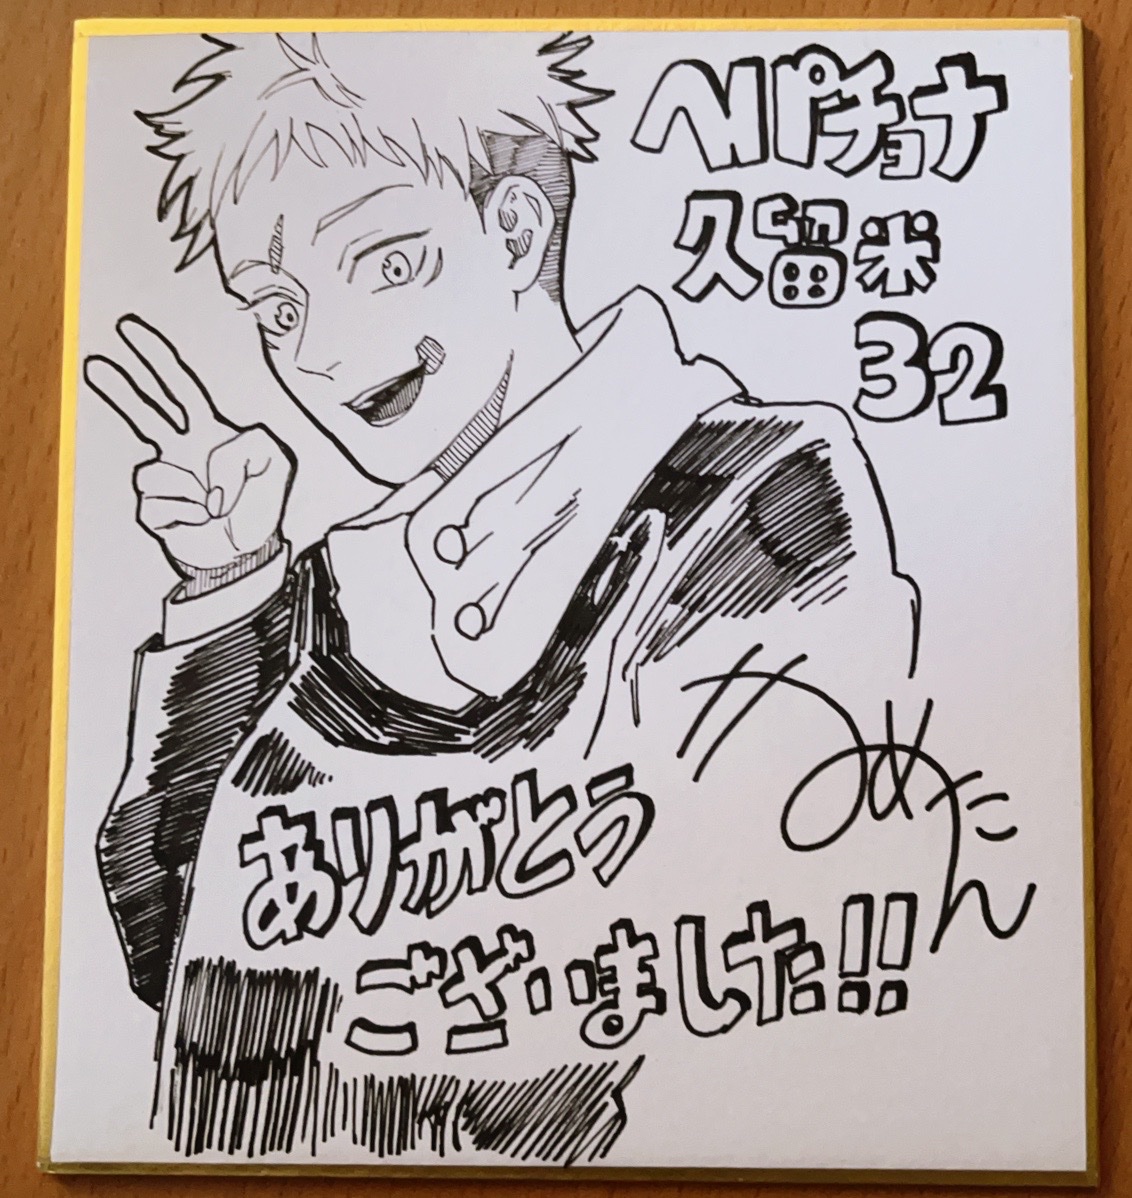 ペパチョナ
久留米
32
かめたん
ありがとう
ございました!!